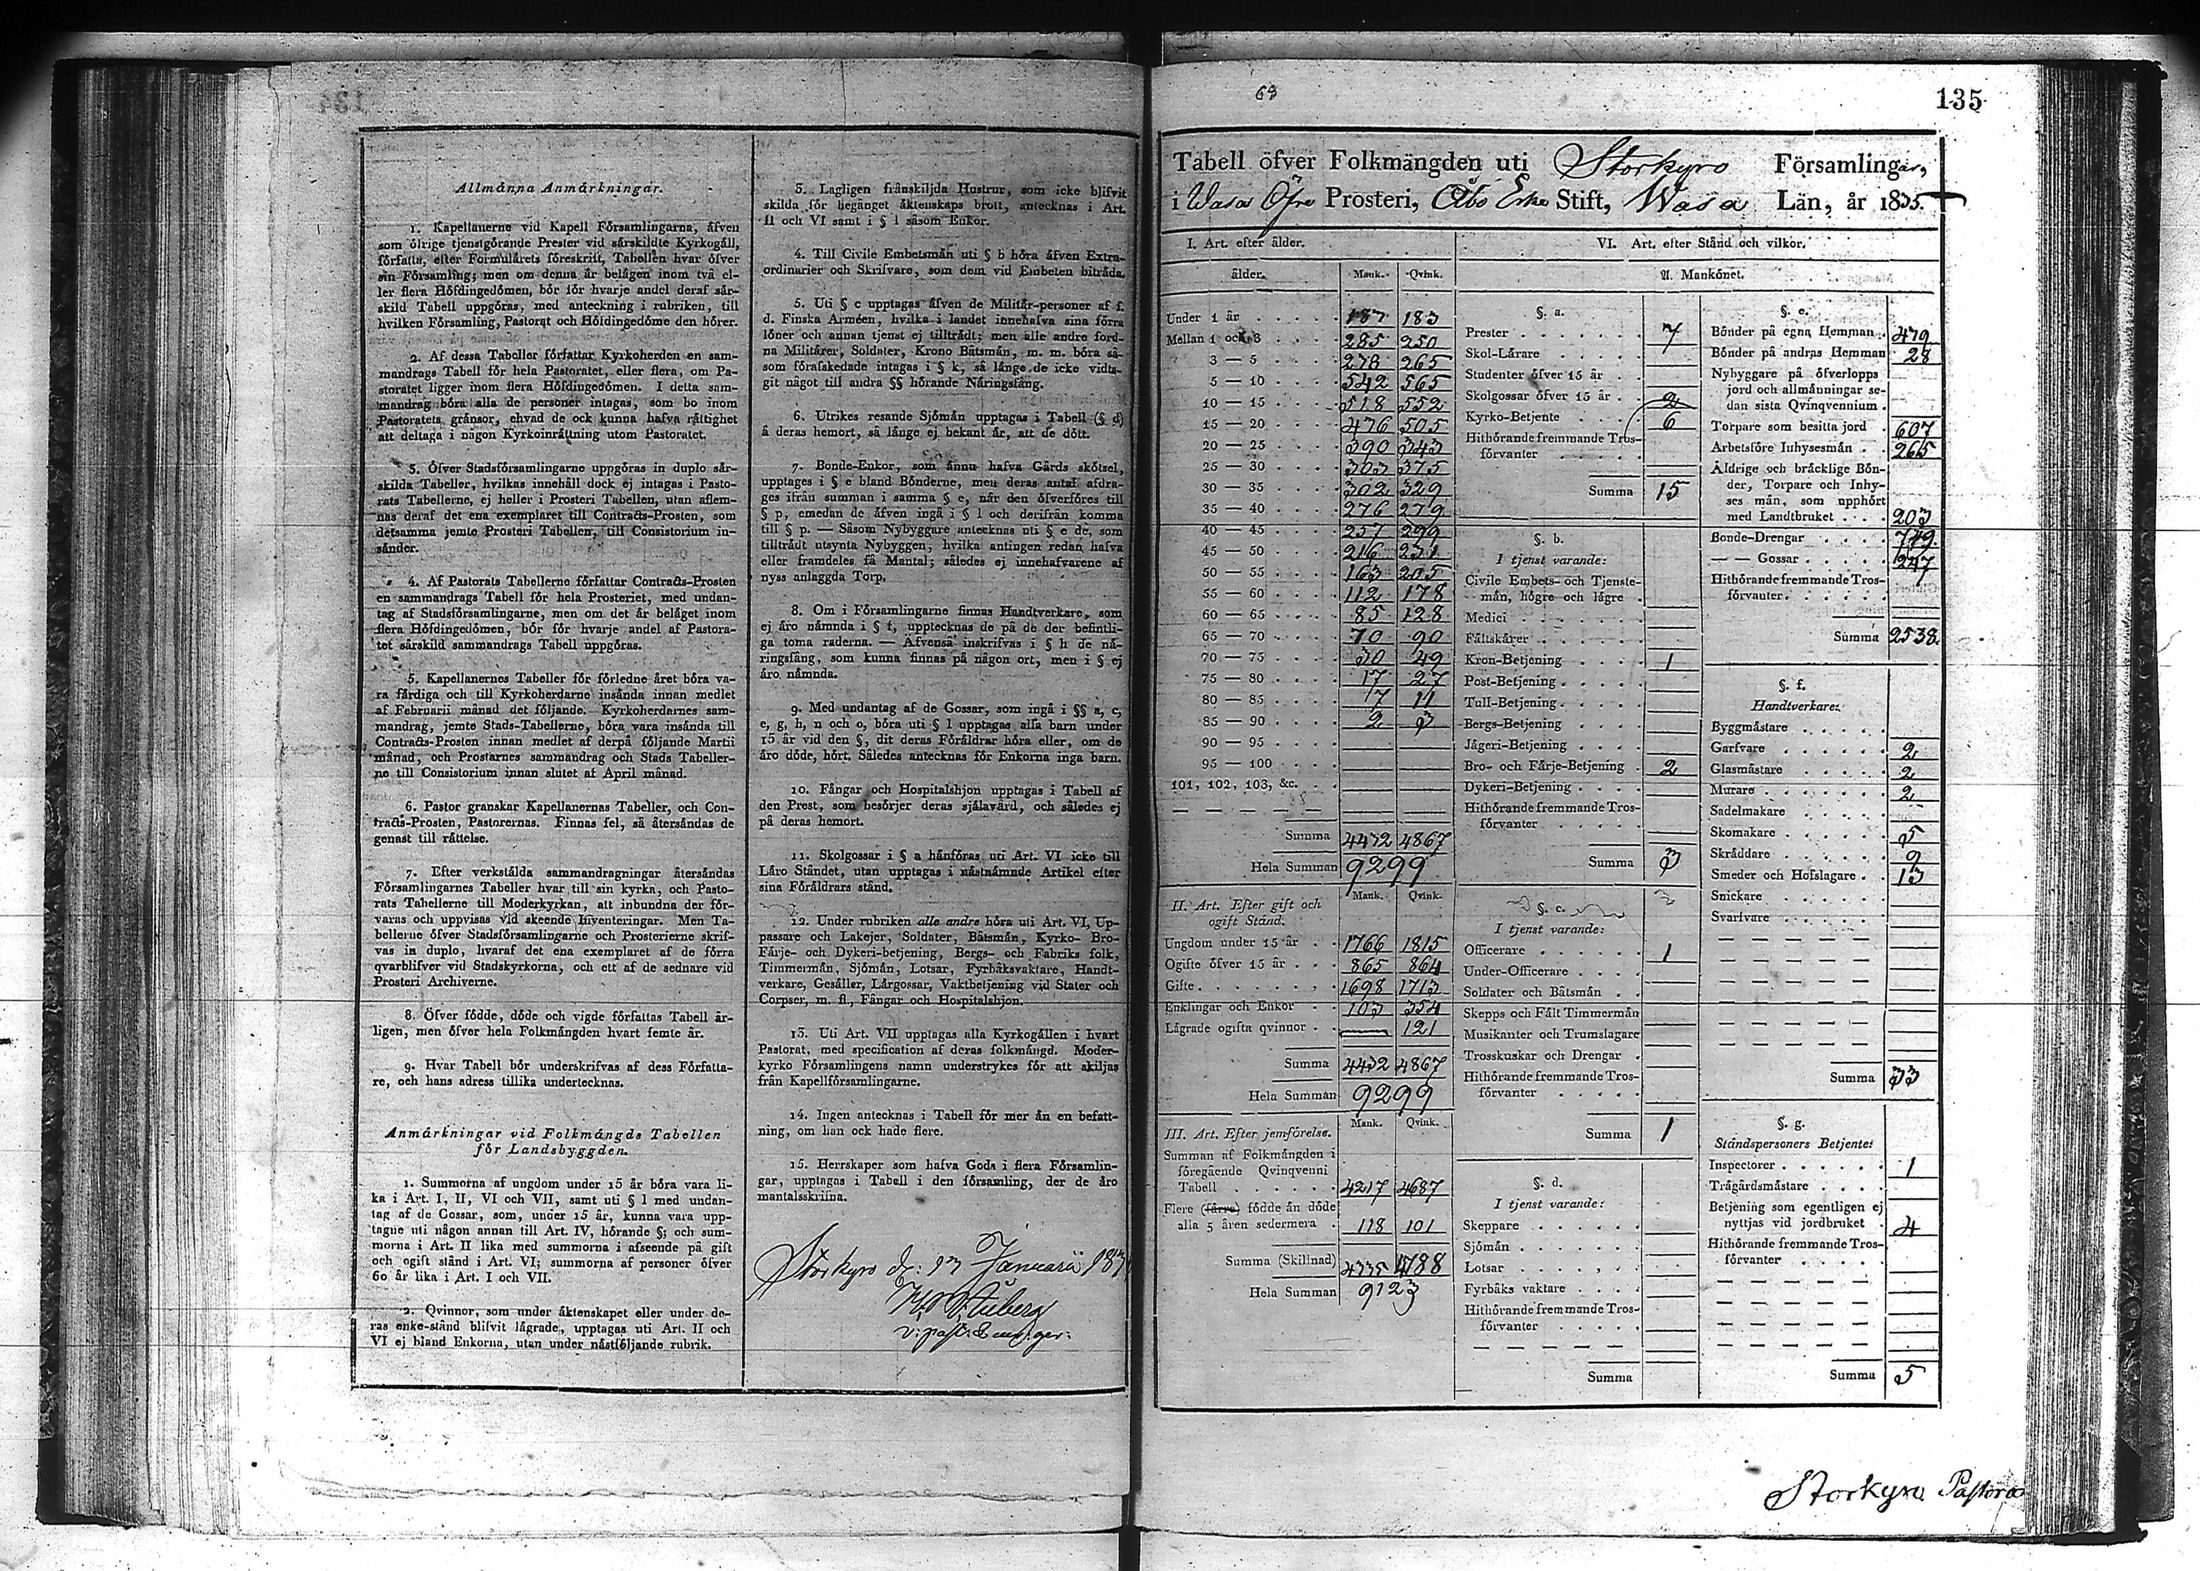 Allmänna Anmärkningar.
1. Kapellanerne vid Kapell Församlingarna, äfven
som ölrige tjenstgörande Prester vid särskildte Kyrkogäll,
författa, efter Formulärets föreskrift, Tabellen hvar öfver
sin Församling; men om denna är belägen inom två el-
ler flera Höfdingedömen, bör för hvarje andel deraf sär-
skild Tabell uppgöras, med anteckning i rubriken, till
hvilken Församling, Pastorat och Höfdingedöme den hörer.
2. Af dessa Tabeller författar Kyrkoherden en sam-
mandrags Tabell för hela Pastoratet, eller flera, om Pa-
storatet ligger inom flera Höfdingedömen. I detta sam-
mandrag böra alla de personer intagas, som bo inom
Pastoratets gränsor, ehvad de ock kunna hafva rättighet
att deltaga i någon Kyrkoinrättning utom Pastoratet.
3. Öfver Stadsförsamlingarne uppgöras in duplo sär-
skilda Tabeller, hvilkas innehåll dock ej intagas i Pasto-
rats Tabellerne, ej heller i Prosteri Tabellen, utan aflem-
nas deraf det ena exemplaret till Contracts-Prosten, som
detsamma jemte Prosteri Tabellen, till Consistorium in-
sänder.
4. Af Pastorats Tabellerne författar Contracts-Prosten
en sammandrags Tabell för hela Prosteriet, med undan-
tag af Stadsförsamlingarne, men om det är beläget inom
flera Höfdingedömen, bör för hvarje andel af Pastora-
tet särskild sammandrags Tabell uppgöras.
5. Kapellanernes Tabeller för förledne året böra va-
ra färdiga och till Kyrkoherdarne insända innan medlet
af Februarii månad det följande. Kyrkoherdarnes sam-
mandrag, jemte Stads-Tabellerne, böra vara insända till
Contracts-Prosten innan medlet af derpå följande Martii
månad, och Prostarnes sammandrag och Stads Tabeller-
ne till Consistorium innan slutet af April månad.
6. Pastor granskar Kapellanernas Tabeller, och Con-
tracts-Prosten, Pastorernas. Finnas fel, så återsändas de
genast till rättelse.
7. Efter verkställda sammandragningar återsändas
Församlingarnes Tabeller hvar till sin kyrka, och Pasto-
rats Tabellerne till Moderkyrkan, att inbundna der för-
varas och uppvisas vid skeende Inventeringar. Men Ta-
bellerne öfver Stadsförsamlingarne och Prosterierne skrif-
vas in duplo, hvaraf det ena exemplaret af de förra
qvarblifver vid Stadskyrkorna, och ett af de sednare vid
Prosteri Archiverne.
8. Öfver födde, döde och vigde författas Tabell är-
ligen, men öfver hela Folkmängden hvart femte år.
9. Hvar Tabell bör underskrifvas af dess Författa-
re, och hans adress tillika undertecknas.
Anmärkningar vid Folkmängds Tabellen
för Landsbyggden.
1. Summorna af ungdom under 15 år böra vara li-
ka i Art. I, II, VI och VII, samt uti § l med undan-
tag af de Gossar, som, under 15 år, kunna vara upp-
tagne uti någon annan till Art. IV, hörande §; och sum-
morna i Art. II lika med summorna i afseende på gift
och ogift stånd i Art. VI; summorna af personer öfver
60 år lika i Art. I och VII.
2. Qvinnor, som under äktenskapet eller under de-
ras enke-stånd blifvit lägrade, upptagas uti Art. II och
VI ej bland Enkorna, utan under nästföljande rubrik.
3. Lagligen frånskiljda Hustrur, som icke blifvit
skilda för begånget äktenskaps brott, antecknas i Art.
II och VI samt i § l såsom Enkor.
4. Till Civile Embetsmän uti § b höra äfven Extra-
ordinarier och Skrifvare, som dem vid Embeten biträda.
5. Uti § c upptagas äfven de Militär-personer af f.
d. Finska Arméen, hvilka i landet innehafva sina förra
löner och annan tjenst ej tillträdt; men alle andre ford-
na Militärer, Soldater, Krono Båtsmän, m. m. böra så-
som förafskedade intagas i § k, så länge de icke vidta-
git något till andra §§ hörande Näringsfång.
6. Utrikes resande Sjömän upptagas i Tabell (§ d)
å deras hemort, så länge ej bekant är, att de dött.
7. Bonde-Enkor, som ännu hafva Gårds skötsel,
upptages i § e bland Bönderne, men deras antal afdra-
ges ifrån summan i samma § e, når den öfverföres till
§ p, emedan de äfven ingå i § l och derifrån komma
till § p. — Såsom Nybyggare antecknas uti § e de, som
tillträdt utsynta Nybyggen, hvilka antingen redan hafva
eller framdeles få Mantal; således ej innehafvarene af
nyss anlaggda Torp.
8. Om i Församlingarne finnas Handtverkare, som
ej äro nämnda i § f, upptecknas de på de der befintli-
ga toma raderna. — Äfvenså inskrifvas i § h de nä-
ringsfång, som kunna finnas på någon ort, men i § ej
äro nämnda.
9. Med undantag af de Gossar, som ingå i §§ a, c,
e, g, h, n och o, böra uti § l upptagas alla barn under
15 år vid den §, dit deras Föräldrar höra eller, om de
äro döde, hört. Således antecknas för Enkorna inga barn.
10. Fångar och Hospitalshjon upptagas i Tabell af
den Prest, som besörjer deras själavård, och således ej
på deras hemort.
11. Skolgossar i § a hänföras uti Art. VI icke till
Läro Ståndet, utan upptagas i nästnämnde Artikel efter
sina Föräldrars stånd.
12. Under rubriken alle andre höra uti Art. VI, Up-
passare och Lakejer, Soldater, Båtsmän, Kyrko- Bro-
Färje- och Dykeri-betjening, Bergs- och Fabriks folk,
Timmermän, Sjömän, Lotsar, Fyrbåksvaktare, Handt-
verkare, Gesäller, Lärgossar, Vaktbetjening vid Stater och
Corpser, m. fl, Fångar och Hospitalshjon.
13. Uti Art. VII upptagas alla Kyrkogällen i hvart
Pastorat, med specification af deras folkmängd. Moder-
kyrko Församlingens namn understrykes för att skiljas
från Kapellförsamlingarne.
14. Ingen antecknas i Tabell för mer än en befatt-
ning, om han ock hade flere.
15. Herrskaper som hafva Gods i flera Församlin-
gar, upptagas i Tabell i den församling, der de äro
mantalsskrifna.
Storkyro d: 13 Januarii
v: past:
69
135
Tabell öfver Folkmängden uti Storkyro Församlingar,
i Wasa Öfre Prosteri, Åbo Erke Stift, Wasa Län, år 1835.
I. Art. efter ålder.
ålder. Mank. Qvink.
Under 1 år 187 183
Mellan 1 och 3 285 250
3 — 5 278 265
5 — 10 542 565
10 — 15 518 552
15 — 20 476 505
20 — 25 390 343
25 — 30 303 375
30 — 35 302 329
35 — 40 276 279
40 — 45 257 299
45 — 50 216 231
50 — 55 163 205
55 — 60 112 178
60 — 65 85 128
65 — 70 70 90
70 — 75 30 49
75 — 80 17 27
80 — 85 7 11
85 — 90 2 3
90 — 95
95 — 100
101, 102, 103, &c.
Summa 4432 4867
Hela Summan 9299
II. Art. Efter gift och
ogift Stånd.
Mank. Qvink.
Ungdom under 15 år 1766 1815
Ogifte öfver 15 år 865 864
Gifte 1698 1713
Enklingar och Enkor 103 354
Lägrade ogifta qvinnor 121
Summa 4432 4867
Hela Summan 9299
III. Art. Efter jemförelse.
Mank. Qvink.
Summan af Folkmängden i
föregående Qvinqvenni
Tabell 4217 4687
Flere (färre) födde än döde
alla 5 åren sedermera 118 101
Summa (Skillnad) 4335 4788
Hela Summan 9123
VI. Art. efter Stånd och vilkor.
A. Mankönet.
§. a.
Prester 7
Skol-Lärare
Studenter öfver 15 år
Skolgossar öfver 15 år 2
Kyrko-Betjente 6
Hithörande fremmande Tros-
förvanter
Summa 15
§. b.
I tjenst varande:
Civile Embets- och Tjenste-
män, högre och lägre
Medici
Fältskärer
Kron-Betjening 1
Post-Betjening
Tull-Betjening
Bergs-Betjening
Jägeri-Betjening
Bro- och Färje-Betjening 2
Dykeri-Betjening
Hithörande fremmande Tros-
förvanter
Summa 3
§. c.
I tjenst varande:
Officerare 1
Under-Officerare
Soldater och Båtsmän
Skepps och Fält Timmermän
Musikanter och Trumslagare
Trosskuskar och Drengar
Hithörande fremmande Tros-
förvanter
Summa 1
§. d.
I tjenst varande:
Skeppare
Sjömän
Lotsar
Fyrbåks vaktare
Hithörande fremmande Tros-
förvanter
Summa
§. e.
Bönder på egna Hemman 479
Bönder på andras Hemman 28
Nybyggare på öfverlopps
jord och allmänningar se-
dan sista Qvinqvennium
Torpare som besitta jord 607
Arbetsföre Inhysesmän 265
Äldrige och bräcklige Bön-
der, Torpare och Inhy-
ses män, som upphört
med Landtbruket 203
Bonde-Drengar 749
— — Gossar 247
Hithörande fremmande Tros-
förvanter
Summa 2538
§. f.
Handtverkare:
Byggmästare
Garfvare 2
Glasmästare 2
Murare 2
Sadelmakare
Skomakare 5
Skräddare 9
Smeder och Hofslagare 13
Snickare
Svarfvare
Summa 33
§. g.
Ståndspersoners Betjente:
Inspectorer 1
Trägårdsmästare
Betjening som egentligen ej
nyttjas vid jordbruket 4
Hithörande fremmande Tros-
förvanter
Summa 5
Storkyro Pastorat